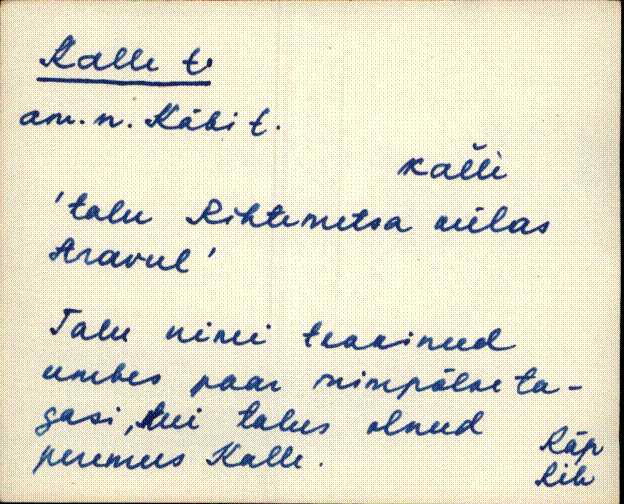 Kalle t.
am. n. Käbi t.
kalli
'talu Rihtemetsa külas
Aravul'
Talu nimi tekkinud
umbes paar inimpõlve ta-
gasi, kui talus olnud
peremees Kalle.
Räp
Rih